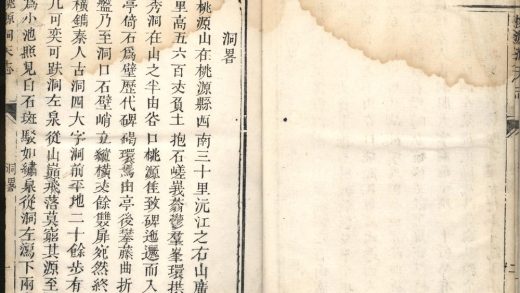 洞畧
桃源山在桃源縣西南三十里沅江之右山廣
里高五六百丈負土抱石嵯峩蓊鬱羣峯環拱
秀洞在山之半由谷口桃源佳致碑迤邐而入
亭倚石爲壁歷代碑碣環焉由亭後攀藤曲折
盤乃至洞口石壁峭立縱橫丈餘雙扉宛然終
橫鐫秦人古洞四大字洞前平地二十餘步有
几可奕可趺洞左泉從山巔飛落莫窮其源至
爲小池照見白石斑駁如繡泉從洞左瀉下兩
桃源洞天志
洞畧